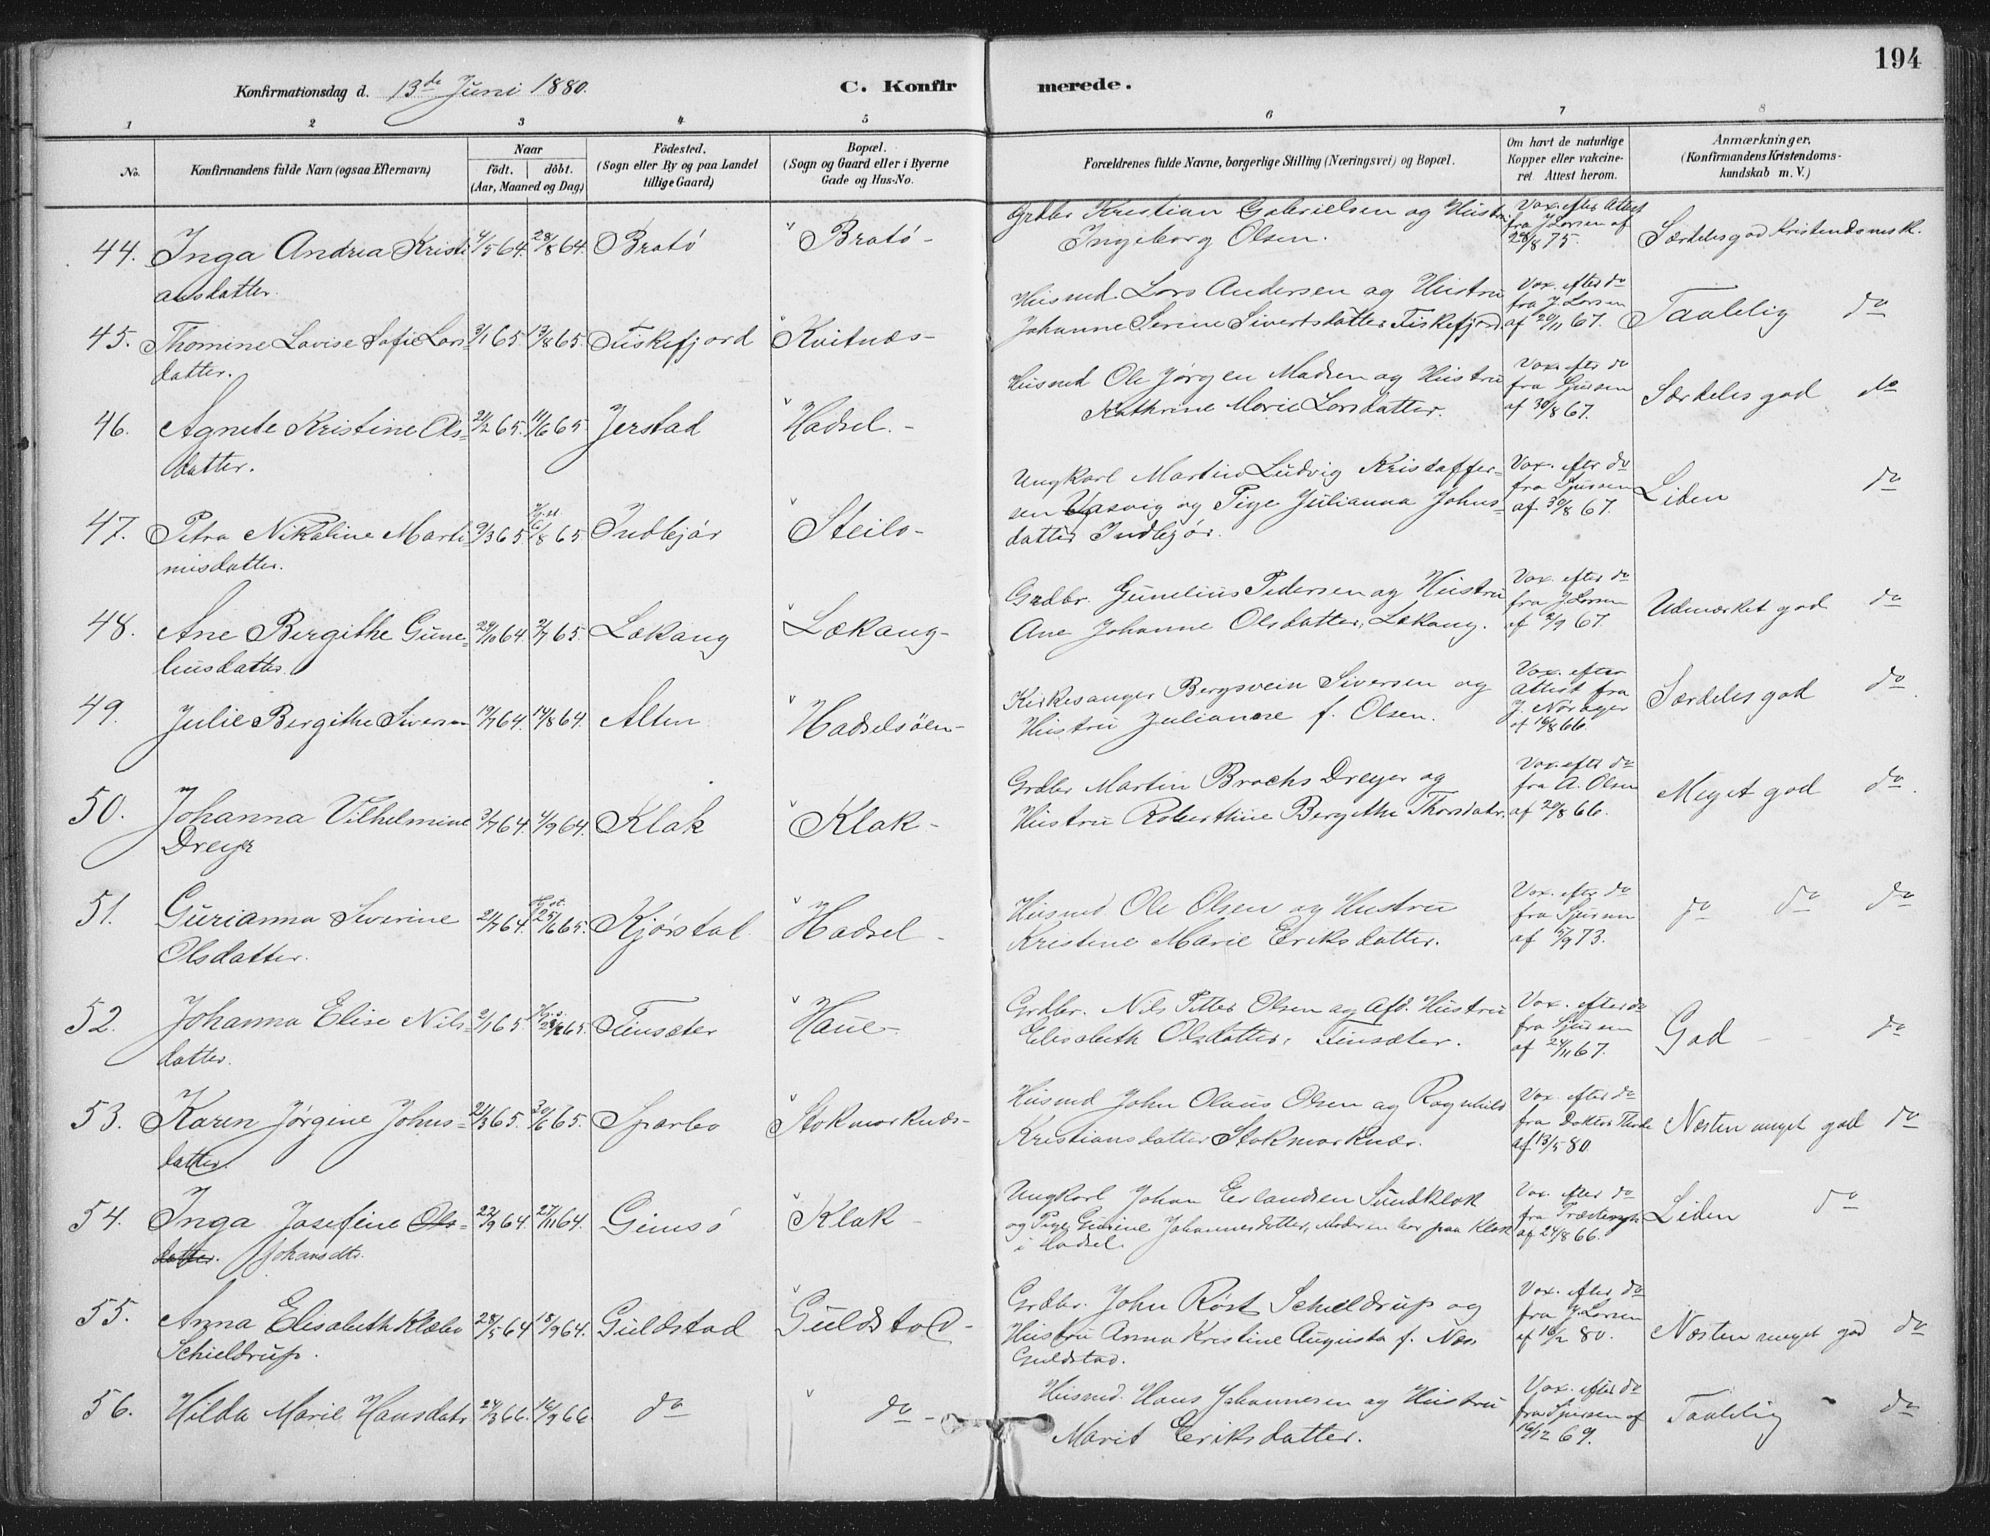 194
Konfirmationsdag d. 13de Juni 1880.
C. Konfir
merede.
1 2 3 4 5 6 7 8
No.
Konfirmandens fulde Navn (ogsaa Efternavn)
Naar
födt. döbt.
(Aar, Maaned og Dag)
Födested.
(Sogn eller By og paa Landet
tillige Gaard)
Bopæl.
(Sogn og Gaard eller i Byerne
Gade og Hus-No.
Forældrenes fulde Navne, borgerlige Stilling (Næringsvei) og Bopæl.
Om havt de naturlige
Kopper eller vakcine-
ret. Attest herom.
Anmærkninger.
(Konfirmandens Kristendoms-
kundskab m. V.)
44. Inga Andrea Kristi
ansdatter.
4/5 64. 28/8 64. Bratö
Bratö -
Grdbr Kristian Gabrielsen og Hustru
Ingeborg Olsen.
Vax. efter Attest
fra J Larsen af
28/8 75.
Særdeles god Kristendomsk.
45. Thomine Lovise Sofie Lars-
datter.
3/1 65. 13/8 65. Fiskefjord
Kvitnæs -
Husmd. Lars Andersen og Hustru
Johanne Serine Sivertsdatter Fiskefjord.
Vax. efter do
fra J. Larsen
af 20/11 67.
Taalelig do
46. Agnete Kristine Ols-
datter.
21/2 65. 11/6 65 Jerstad
Hadsel. -
Husmd Ole Jörgen Madsen og Hustru
Kathrine Marie Larsdatter.
Vax. efter do
fra Sjursen
af 30/8 67.
Særdeles god do
47. Petra Nikoline Marti
nusdatter.
9/3 65 Hj. dt.
6/8 65 Indbjör
Steilo -
Ungkarl Martin Ludvig Kristoffer-
sen Vasvig og Pige Julianna Johns-
datter Indbjör.
Vax. efter do
fra Sjursen
af 30/8 67.
Liden do
48. Ane Bergithe Gune-
liusdatter.
23/10 64. 2/7 65. Lækang
Lækang -
Grdbr. Gunelius Pedersen og Hustru
Ane Johanne Olsdatter, Lækang.
Vax. efter do
fra J Larsen
af 2/9 67.
Udmærket god do
49. Julie Bergithe Siversen
17/7 64. 14/8 64. Alten
Hadselsöen -
Kirkesanger Bergsvein Siversen og
Hustru Julianne f. Olsen.
Vax. efter
Attest fra
J. Norager
af 16/8 66.
Særdeles god do.
50. Johanna Vilhelmine
Dreyer
3/7 64. 4/9 64. Klak
Klak -
Grdbr Martin Brochs Dreyer og
Hustru Roberthine Bergithe Thorsdatr.
Vax. efter do
fra A. Olsen
af 20/8 66.
Meget god do.
51. Gurianna Severine
Olsdatter.
21/7 64. 25/6 65. Kjörstad
Hadsel -
Husmd. Ole Olsen og Hustru
Kristine Marie Eriksdatter.
Vax. efter do
fra Sjursen
af 15/9 73.
do do do
52. Johanna Elise Nils-
datter.
2/1 65. Finsæter
Haue -
Grdbr. Nils Petter Olsen og Afd. Hustru
Elisabeth Olsdatter, Finsæter.
Vax. efter do
fra Sjursen
af 24/11 67.
God do
53. Karen Jörgine Johns-
datter.
21/3 65. 30/6 65. Sparbo
Stokmarknæs -
Husmd John Olaus Olsen og Ragnhild
Kristiansdatter Stokmarknæs.
Vax. efter do
fra Doktor Thode
af 13/5 80.
Næsten meget god do
54. Inga Josefine Ols-
datter. Johansdtr.
22/9 64. 27/11 64. Gimsö
Klak -
Ungkarl Johan Erlandsen Sundklak
og Pige Gurine Johannesdatter, Moderen bor paa Klak
i Hadsel
Vax. efter do
af 24/8 66.
Liden do
55. Anna Elisabeth Klæbo
Schieldrup.
28/5 64 18/9 64. Guldstad
Guldstad -
Grdbr. John Röst Schieldrup og
Hustru Anna Kristine Augusta f. Næss
Guldstad.
Vax. efter do
fra J. Larsen
af 16/2 80.
Næsten meget god do
56. Hilda Marie Hansdatr
24/3 66. 16/9 66. do
do -
Husmd. Hans Johannesen og Hustru
Marit Eriksdatter.
Vax. efter do
fra Sjursen af
16/12 69.
Taalelig - do